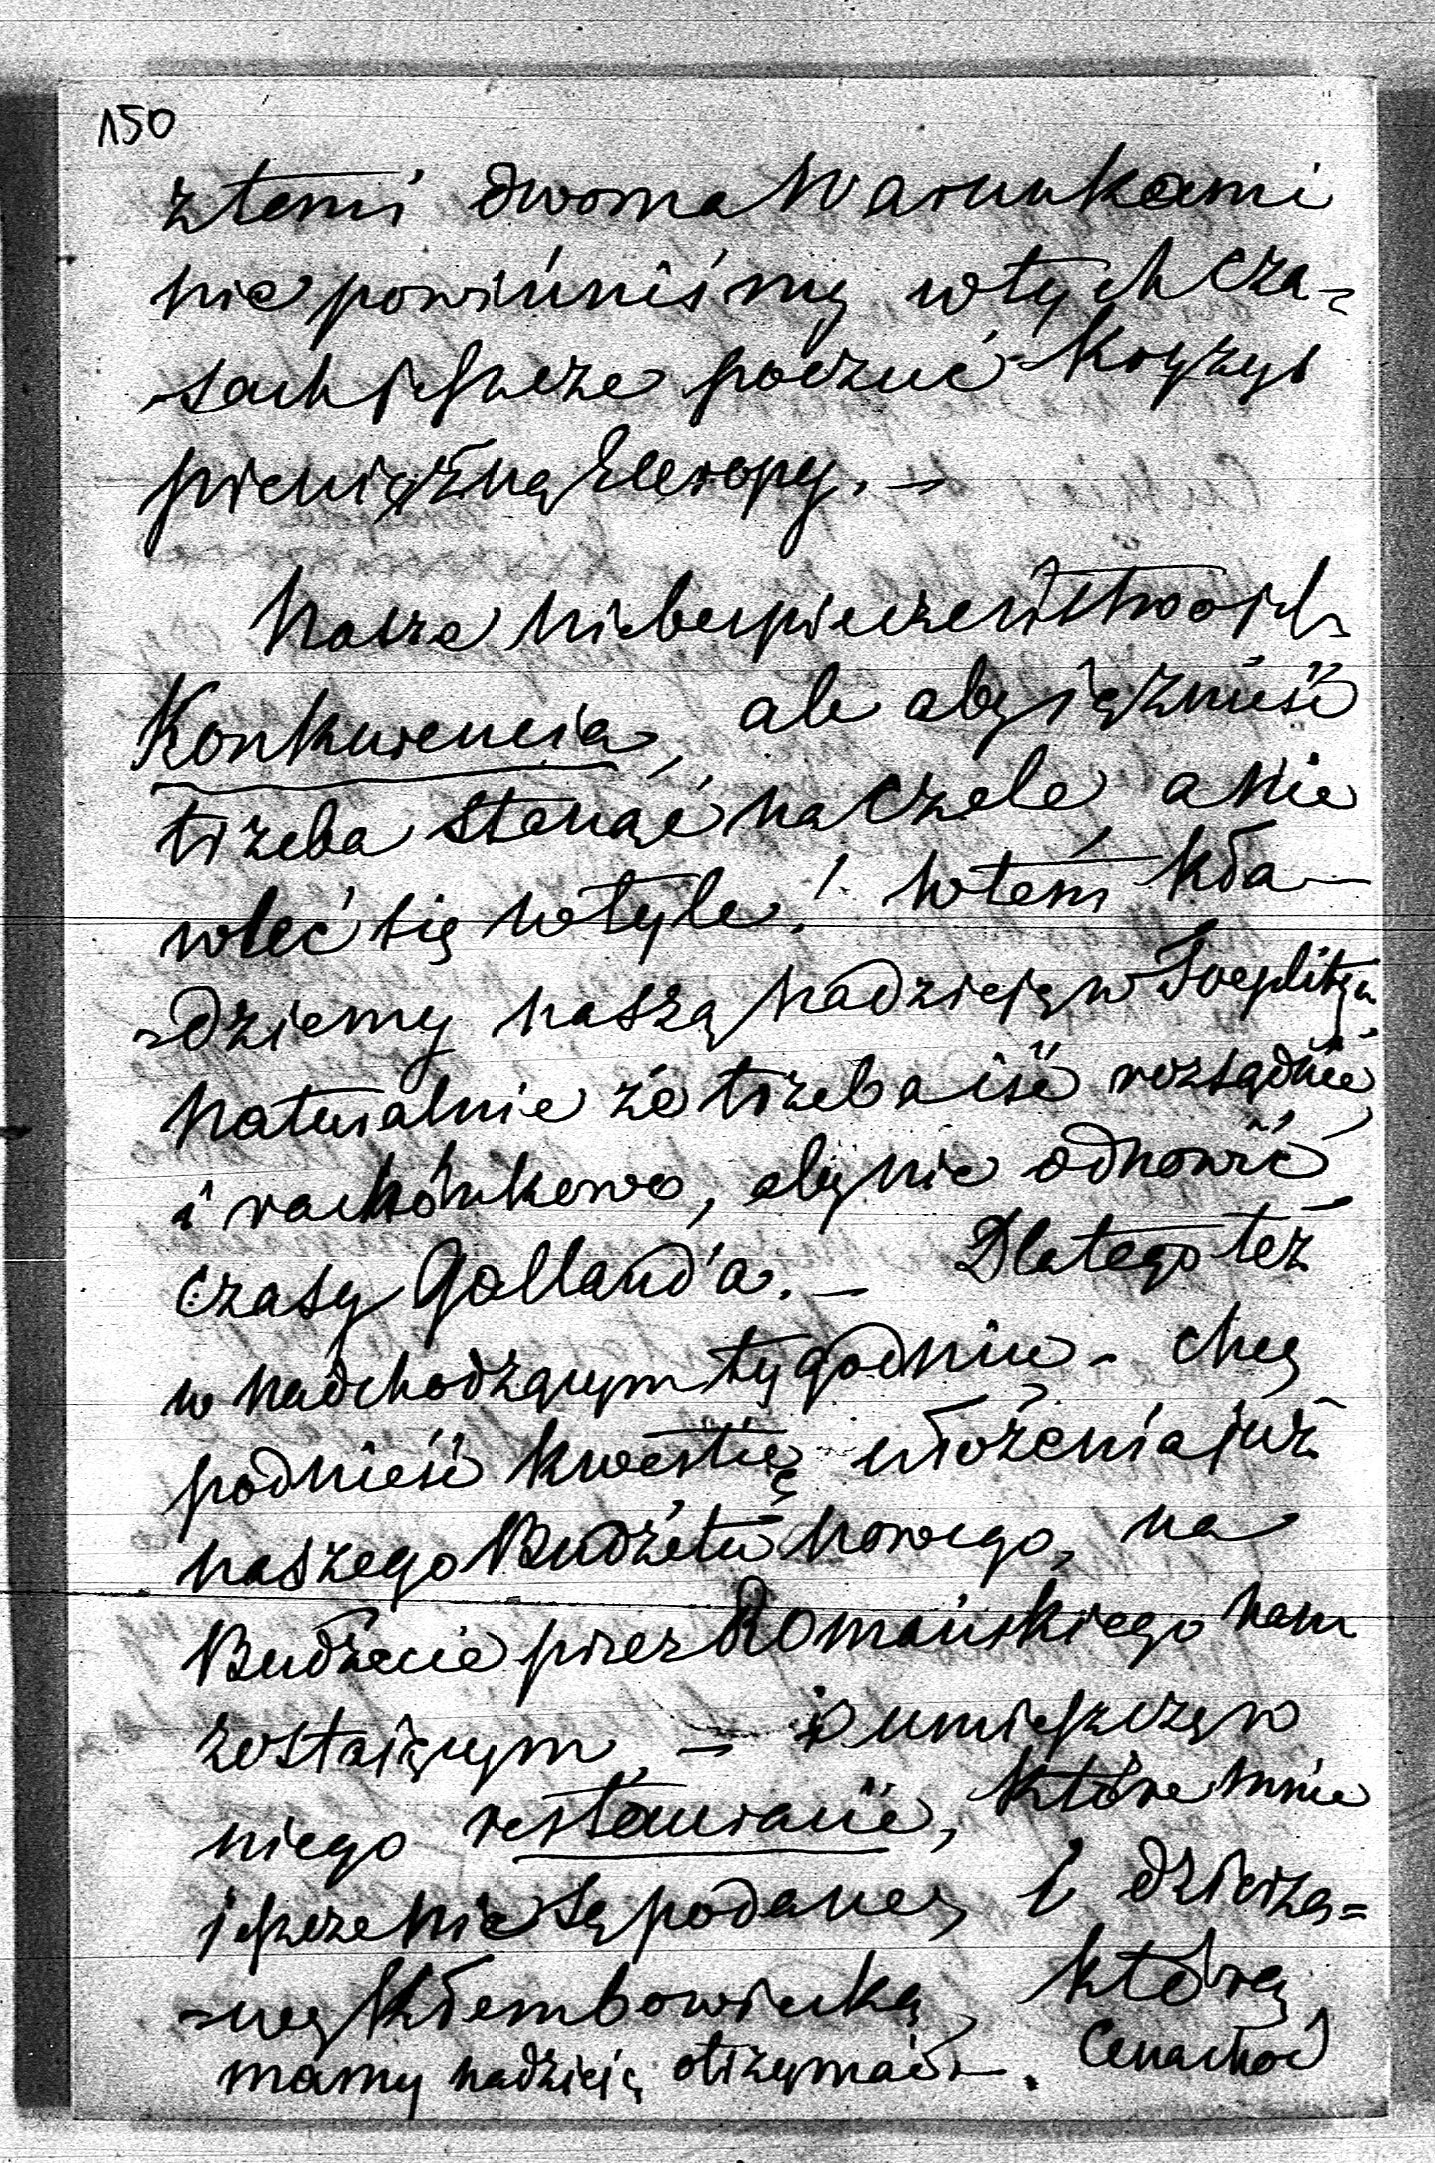 150
z temi dwoma Warunkami
nie powinniśmy w tych cza-
-sach jeszcze poczuć Kryzys
pieniężną Europy. —
Nasze niebespieczeństwo jest
Konkurencia, ale aby ią znieść
trzeba stanąć na czele, a nie
wlec się w tyle! W tem kła-
-dziemy naszą nadzieję w Toeplitzu
Naturalnie że trzeba iść rozsądnie
i rachónkowo, aby nie odnowić
czasy Golland'a. — Dlatego też
w nadchodzącym tygodniu - chcę
podnieść kwestię ułożenia już
naszego Budżetu nowego, na
Budżecie przez Romańskiego nam
zostaiącym, — i umieszczę w
niego restauracie, które mnie
ieszcze nie są podane, i dzierża=
-wę Kłembowiecką, którą
mamy nadzieię otrzymać —. Cena choć